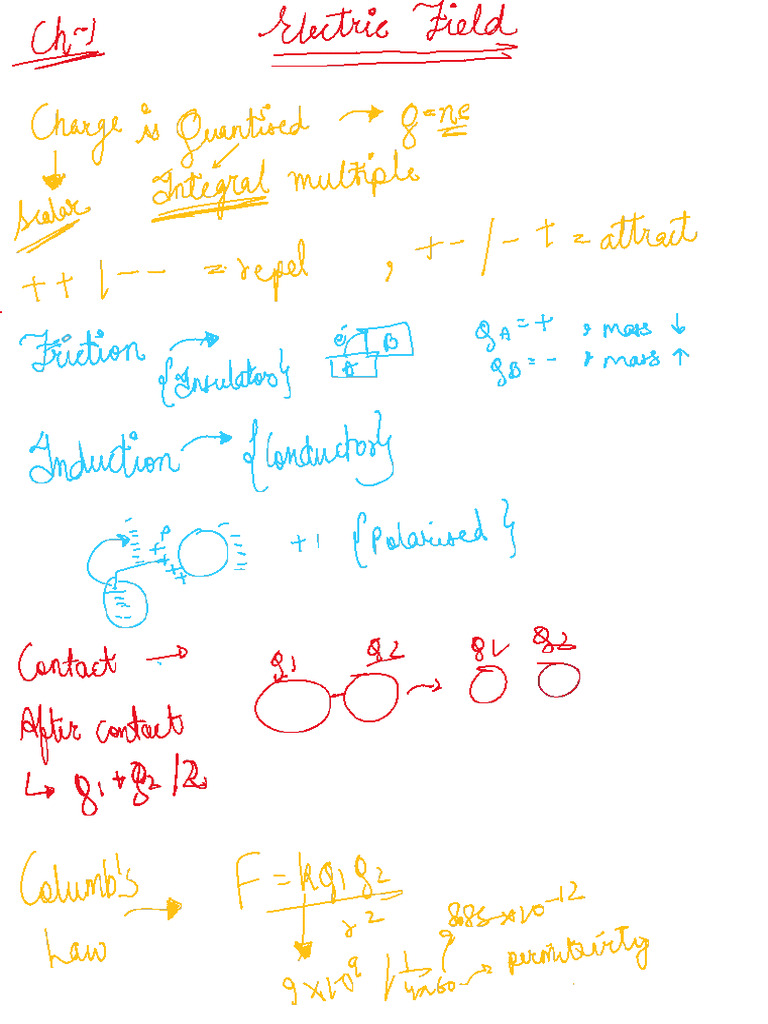 Ch-1 Electric Field
Charge is Quantised → q=ne
Scalar Integral multiple
+ + / - - = repel , + - / - + = attract
Friction → e⁻ B qA = + , mass ↓
{Insulator} A qB = - , mass ↑
Induction → {Conductor}
{Polarised}
Contact → q1 q2 → q1 q2
After contact
↳ q1 + q2 / 2
Columb's F = kq1q2
Law → r² 8.85 × 10⁻¹²
9×10⁹ / 1/4πε0 → permitivity